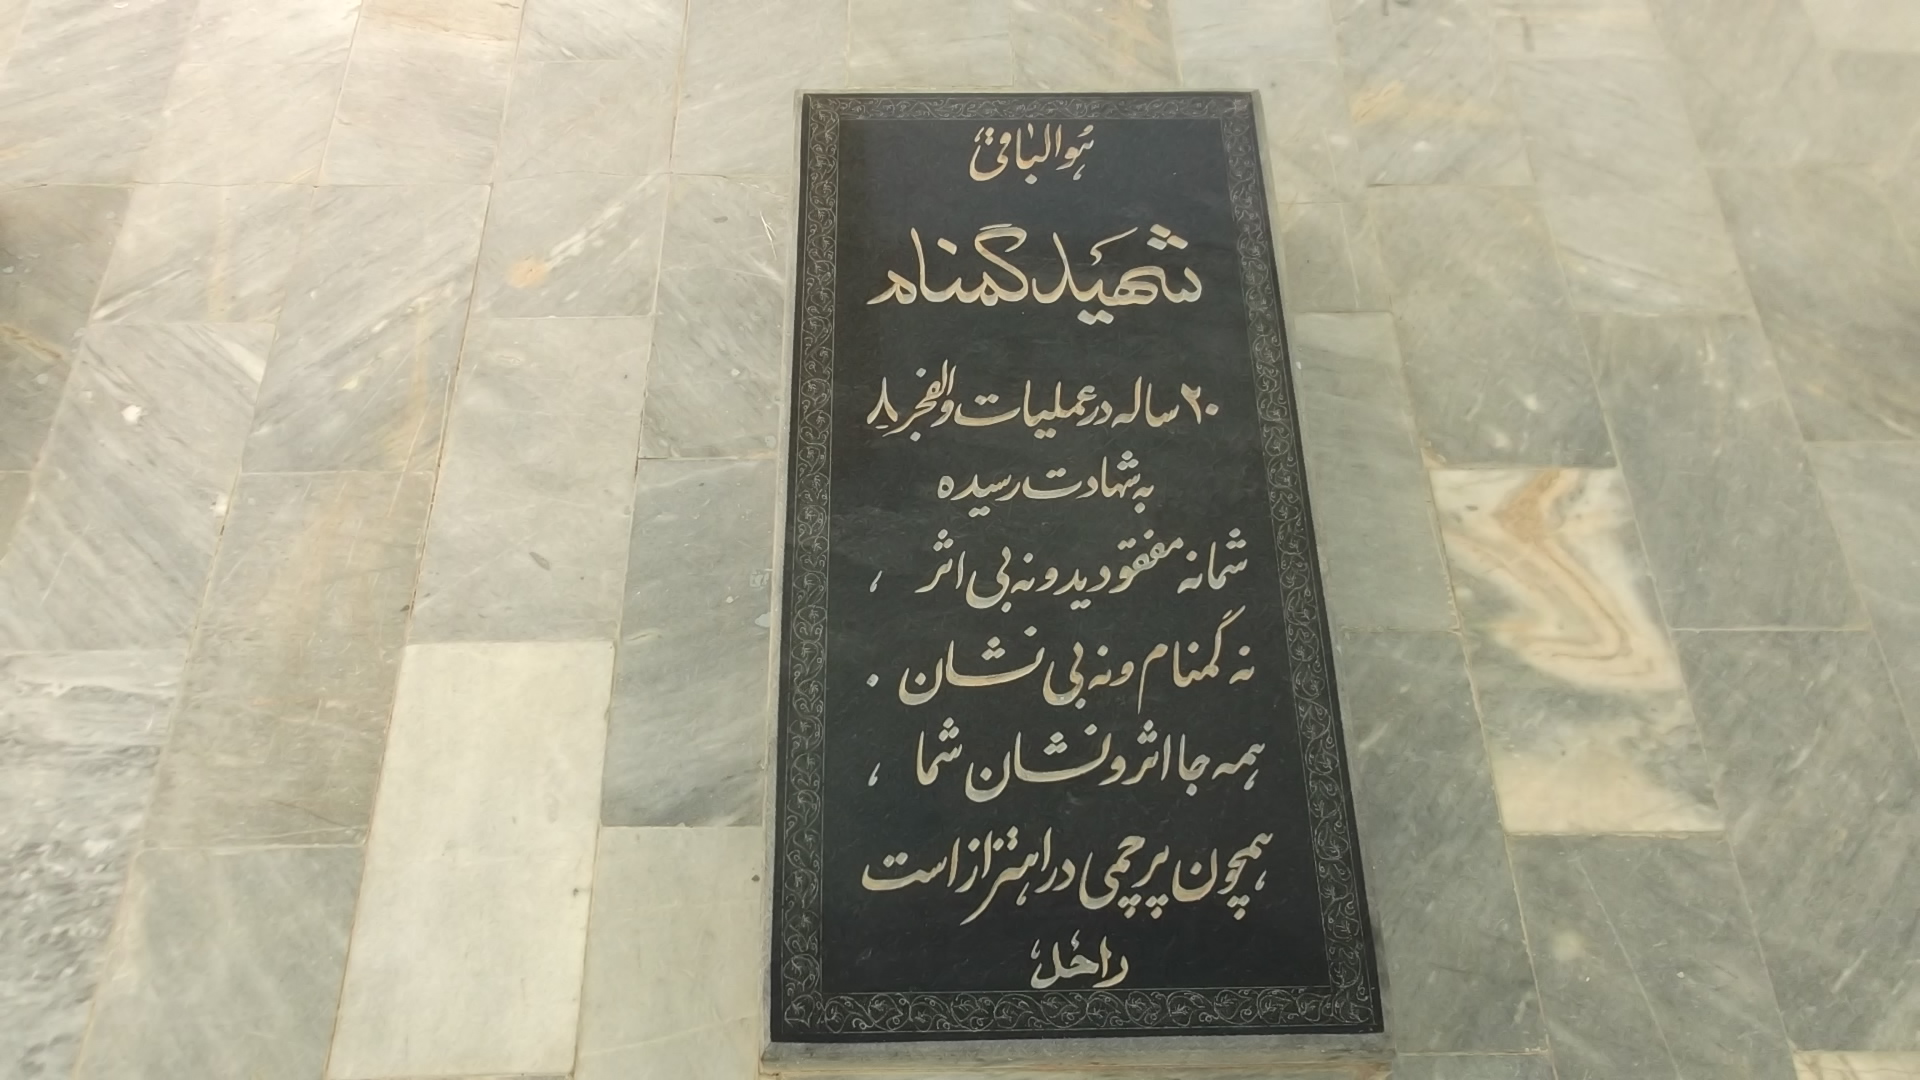 هوالباقی
شهید گمنام
۲۰ ساله در عملیات والفجر ۸
به شهادت رسیده
شما نه مفقودید و نه بی اثر ،
نه گمنام و نه بی نشان .
همه جا اثر و نشان شما ،
همچون پرچمی در اهتزاز است
راحل